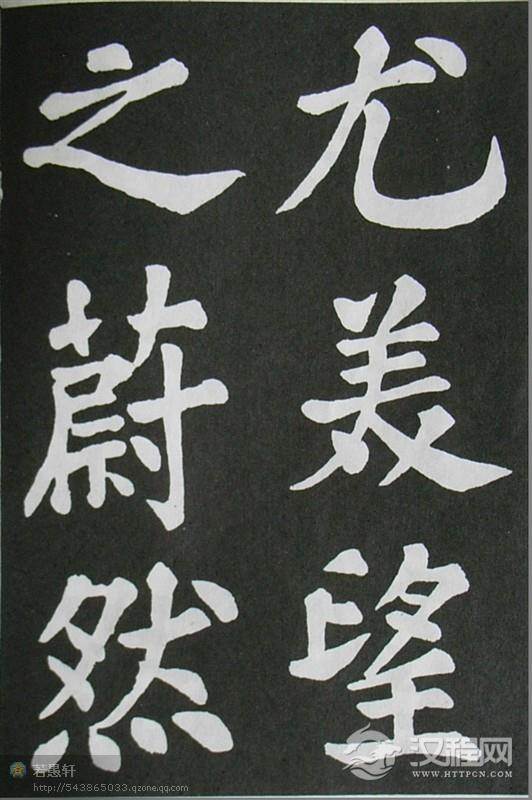 尤美望
之蔚然
若愚轩
http://543865033.qzone.qq.com
汉程网
WWW.HTTPCN.COM